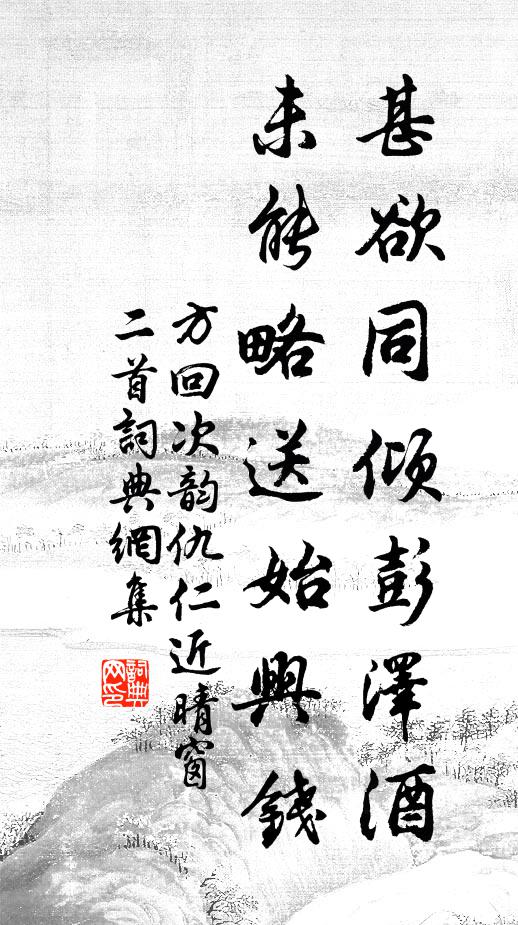 甚欲同傾彭澤酒
未能略送始興錢
方回次韵仇仁近晴窗
二首詞典網集
詞典
网印